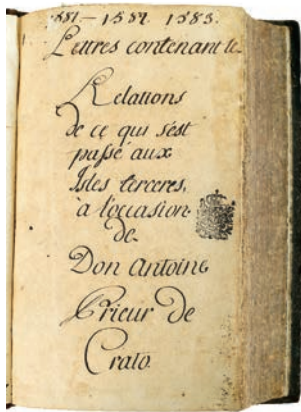 1581.—1582. 1583.
Lettres contenant le
Relations
de ce qui s'est
passé aux
Isles terceres,
à l'occasion
de
Don Antoine
Prieur de
Crato